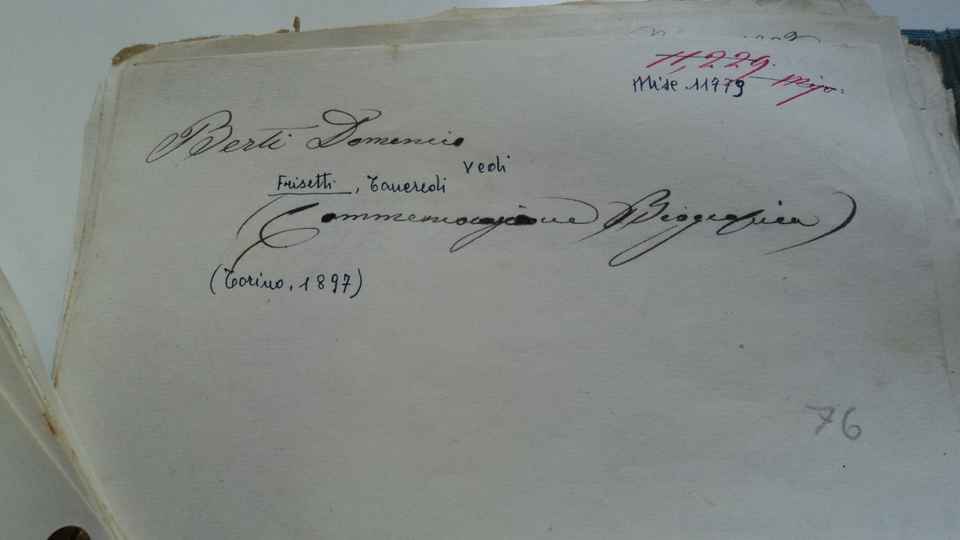 11,229.
Misc. 11979
Berti Domenico
Vedi
Frisetti, Tancredi
(Commemorazione Biografica)
(Torino, 1897)
76